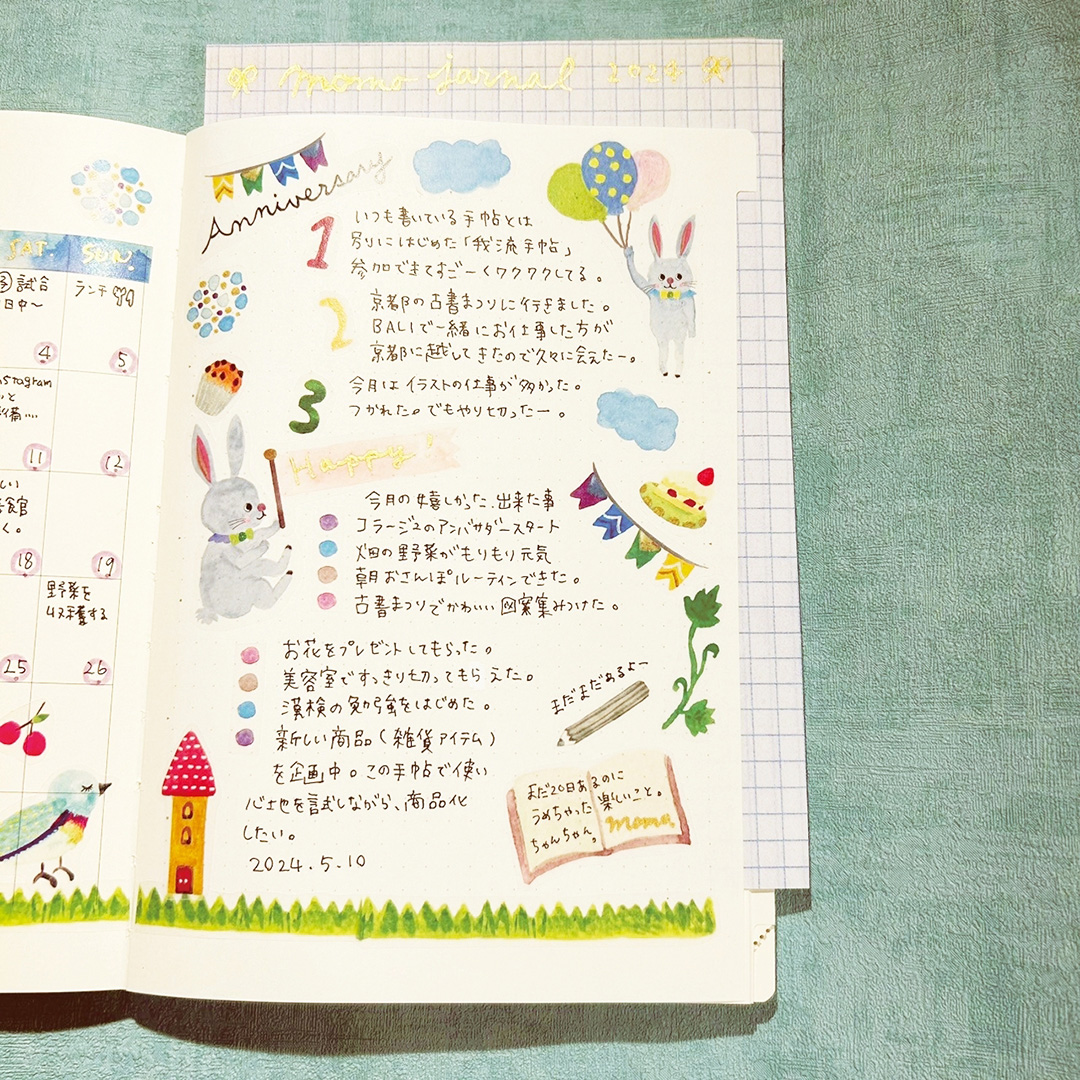 momo jarnal 2024
SAT. SUN.
試合
日中〜
ランチ
4
5
nstagram
と
備....
11
12
い
館
く。
18
19
野菜を
収穫する
25
26
Anniversary
1
いつも書いている手帖とは
別にはじめた「我流手帖」
参加できてすごーくワクワクしてる。
2
京都の古書まつりに行きました。
BALIで一緒にお仕事した方が
京都に越してきたので久々に会えたー。
3
今月はイラストの仕事が多かった。
つかれた。でもやり切ったー。
Happy!
今月の嬉しかった、出来た事
コラージュのアンバサダースタート
畑の野菜がもりもり元気
朝おさんぽルーティンできた。
古書まつりでかわいい図案集みつけた。
お花をプレゼントしてもらった。
美容室ですっきり切ってもらえた。
漢検の勉強をはじめた。
新しい商品(雑貨アイテム)
を企画中。この手帖で使い
心地を試しながら、商品化
したい。
2024.5.10
まだまだあるよー
まだ20日あるのに
うめちゃった
ちゃんちゃん。
楽しいこと。
momo